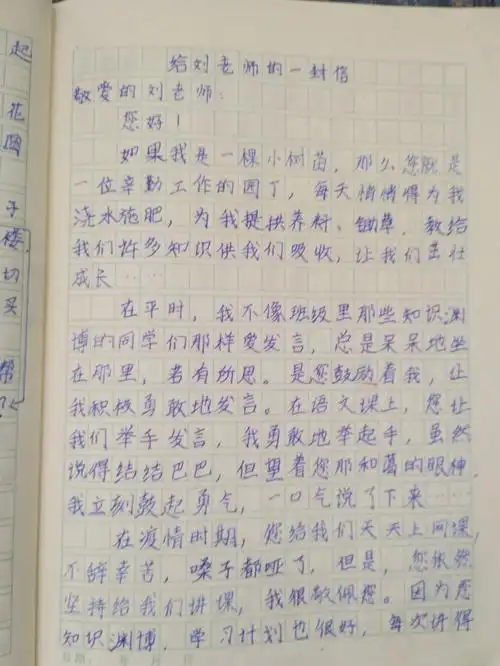 给刘老师的一封信
敬爱的刘老师：
您好！
如果我是一棵小树苗，那么您就是
一位辛勤工作的园丁，每天悄悄得为我
浇水施肥，为我提供养料、锄草，教给
我们许多知识供我们吸收，让我们茁壮
成长……
在平时，我不像班级里那些知识渊
博的同学们那样爱发言，总是呆呆地坐
在那里，若有所思。是您鼓励着我，让
我积极勇敢地发言。在语文课上，您让
我们举手发言，我勇敢地举起手，虽然
说得结结巴巴，但望着您那和蔼的眼神，
我立刻鼓起勇气，一口气说了下来……
在疫情时期，您给我们天天上网课，
不辞辛苦，嗓子都哑了，但是，您依然
坚持给我们讲课，我很敬佩您。因为您
知识渊博，学习计划也很好，每次讲得
起
花
园
子
楼
切
买
帮
？